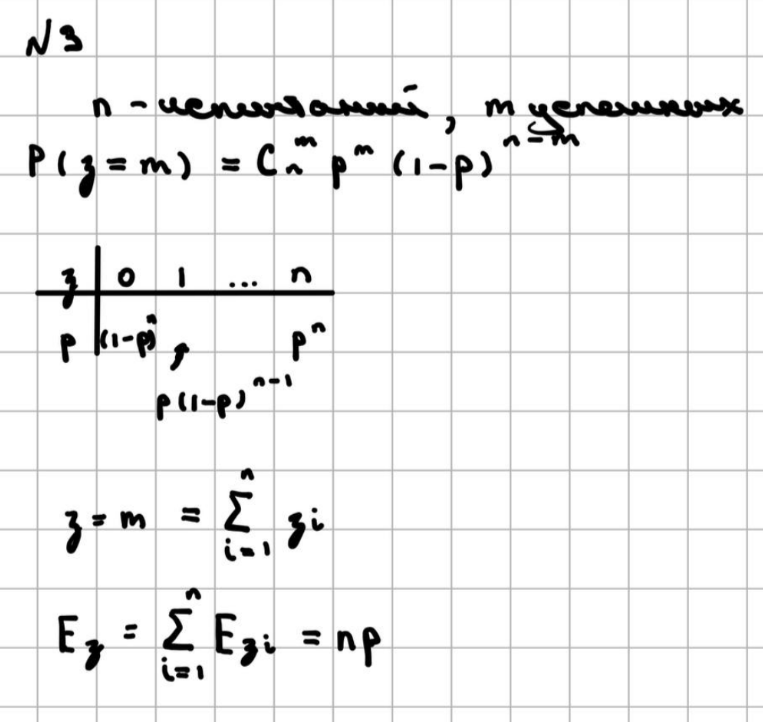 N3
n - испытаний, m успешных
P(ξ=m) = Cₙᵐ pᵐ (1-p)ⁿ⁻ᵐ
ξ | 0 1 ... n
p | (1-p)ⁿ , pⁿ
p(1-p)ⁿ⁻¹
ξ = m = ∑ᵢ₌₁ⁿ ξi
Eξ = ∑ᵢ₌₁ⁿ Eξi = np